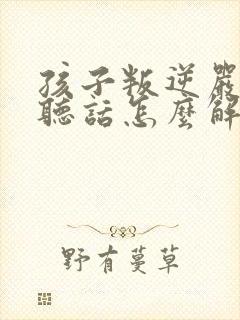 孩子叛逆嚴
聽話怎麼解
野有蔓草